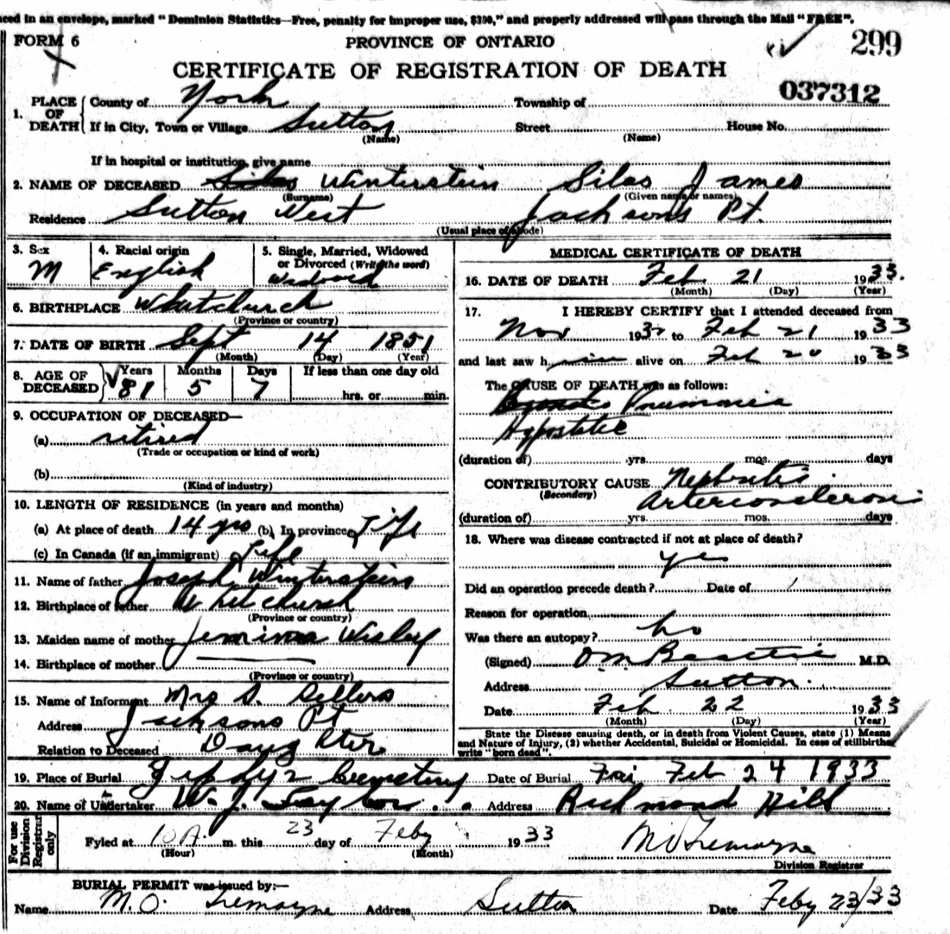 ced in an envelope, marked "Dominion Statistics—Free, penalty for improper use, $300," and properly addressed will pass through the Mail "FREE".
FORM 6 PROVINCE OF ONTARIO 299
CERTIFICATE OF REGISTRATION OF DEATH
037312
1. PLACE OF DEATH County of York Township of
If in City, Town or Village Sutton Street House No.
(Name) (Name)
If in hospital or institution, give name
2. NAME OF DECEASED Winterstein Silas James
(Surname) (Given name or names)
Residence Sutton West Jacksons Pt.
(Usual place of abode)
3. Sex M
4. Racial origin English
5. Single, Married, Widowed or Divorced (Write the word) Widowed
6. BIRTHPLACE Whitchurch
(Province or country)
7. DATE OF BIRTH Sept 14 1851
(Month) (Day) (Year)
8. AGE OF DECEASED Years 81 Months 5 Days 7 If less than one day old hrs. or min.
9. OCCUPATION OF DECEASED—
(a) retired
(Trade or occupation or kind of work)
(b)
(Kind of industry)
10. LENGTH OF RESIDENCE (in years and months)
(a) At place of death 14 yrs (b) In province Life
(c) In Canada (if an immigrant) Life
11. Name of father Joseph Winterstein
12. Birthplace of father Whitchurch
(Province or country)
13. Maiden name of mother Jemima
14. Birthplace of mother
(Province or country)
15. Name of Informent Mrs D. Sellers
Address Jacksons Pt
Relation to Deceased Daughter
MEDICAL CERTIFICATE OF DEATH
16. DATE OF DEATH Feb 21 1933.
(Month) (Day) (Year)
17. I HEREBY CERTIFY that I attended deceased from
Nov 1932 to Feb 21 1933
and last saw h alive on Feb 20 1933
The CAUSE OF DEATH was as follows:
Pneumonia
Hypostatic
(duration of) yrs. mos. days
CONTRIBUTORY CAUSE Nephritis
(Secondery) Arteriosclerosis
(duration of) yrs. mos. days
18. Where was disease contracted if not at place of death?
yes
Did an operation precede death? Date of
Reason for operation
Was there an autopay? no
(Signed) M.D.
Address Sutton.
Date Feb 22 1933
(Month) (Day) (Year)
State the Disease causing death, or in death from Violent Causes, state (1) Means
and Nature of Injury, (2) whether Accidental, Suicidal or Homicidal. In case of stillbirths
write "born dead".
19. Place of Burial Cemetery Date of Burial Fri Feb 24 1933
20. Name of Undertaker W. J. Taylor Address Richmond Hill
For use Division Registrar only
Fyled at 10 A. m. this 23 day of Feby 1933 M O Tremayne
(Hour) (Month) Division Registrar
BURIAL PERMIT was issued by:—
Name M. O. Tremayne Address Sutton Date Feby 23/33